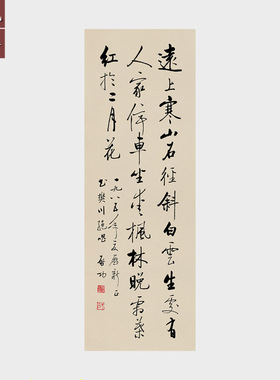 遠上寒山石徑斜白雲生處有
人家停車坐愛楓林晚霜葉
紅於二月花
一九八五年元辰新正
書樊川絶唱 啟功